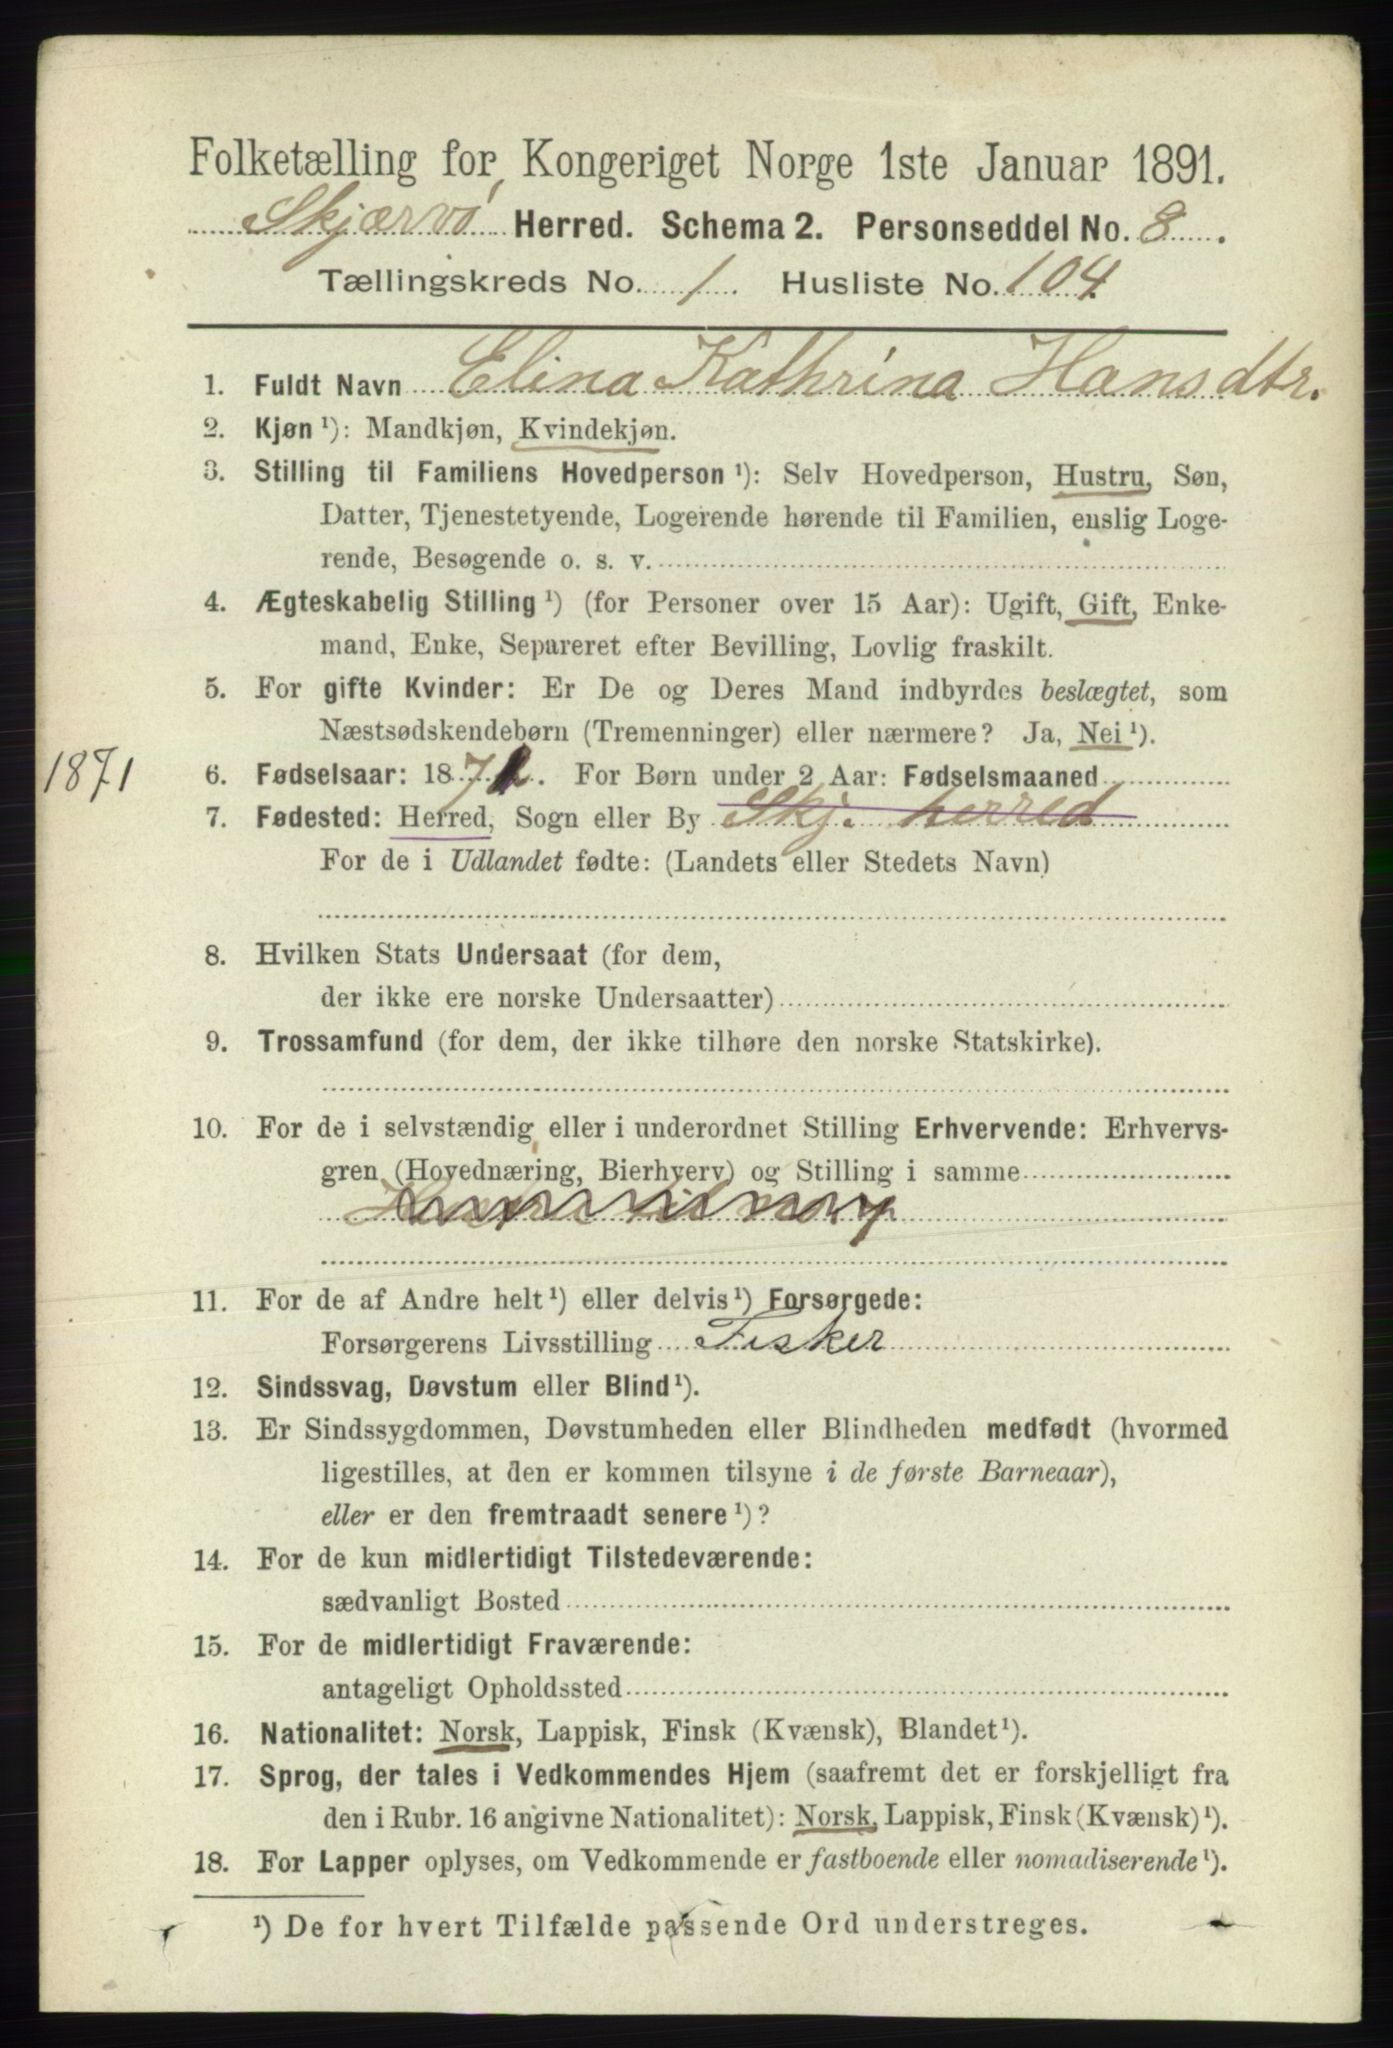 Folketælling for Kongeriget Norge 1ste Januar 1891.
Skjærvö Herred. Schema 2. Personseddel No. 8.
Tællingskreds No. 1. Husliste No. 104.
1. Fuldt Navn Elina Kathrina Hansdtr.
2. Kjøn ¹): Mandkjøn, Kvindekjøn.
3. Stilling til Familiens Hovedperson ¹): Selv Hovedperson, Hustru, Søn,
Datter, Tjenestetyende, Logerende hørende til Familien, enslig Loge-
rende, Besøgende o. s. v.
4. Ægteskabelig Stilling ¹) (for Personer over 15 Aar): Ugift, Gift, Enke-
mand, Enke, Separeret efter Bevilling, Lovlig fraskilt.
5. For gifte Kvinder: Er De og Deres Mand indbyrdes beslægtet, som
Næstsødskendebørn (Tremenninger) eller nærmere? Ja, Nei ¹).
1871
6. Fødselsaar: 1871. For Børn under 2 Aar: Fødselsmaaned
7. Fødested: Herred, Sogn eller By Skj. herred
For de i Udlandet fødte: (Landets eller Stedets Navn)
8. Hvilken Stats Undersaat (for dem,
der ikke ere norske Undersaatter)
9. Trossamfund (for dem, der ikke tilhøre den norske Statskirke).
10. For de i selvstændig eller i underordnet Stilling Erhvervende: Erhvervs-
gren (Hovednæring, Bierhverv) og Stilling i samme
11. For de af Andre helt ¹) eller delvis ¹) Forsørgede:
Forsørgerens Livsstilling Fisker
12. Sindssvag, Døvstum eller Blind ¹).
13. Er Sindssygdommen, Døvstumheden eller Blindheden medfødt (hvormed
ligestilles, at den er kommen tilsyne i de første Barneaar),
eller er den fremtraadt senere ¹)?
14. For de kun midlertidigt Tilstedeværende:
sædvanligt Bosted
15. For de midlertidigt Fraværende:
antageligt Opholdssted
16. Nationalitet: Norsk, Lappisk, Finsk (Kvænsk), Blandet ¹).
17. Sprog, der tales i Vedkommendes Hjem (saafremt det er forskjelligt fra
den i Rubr. 16 angivne Nationalitet): Norsk, Lappisk, Finsk (Kvænsk) ¹).
18. For Lapper oplyses, om Vedkommende er fastboende eller nomadiserende ¹).
¹) De for hvert Tilfælde passende Ord understreges.